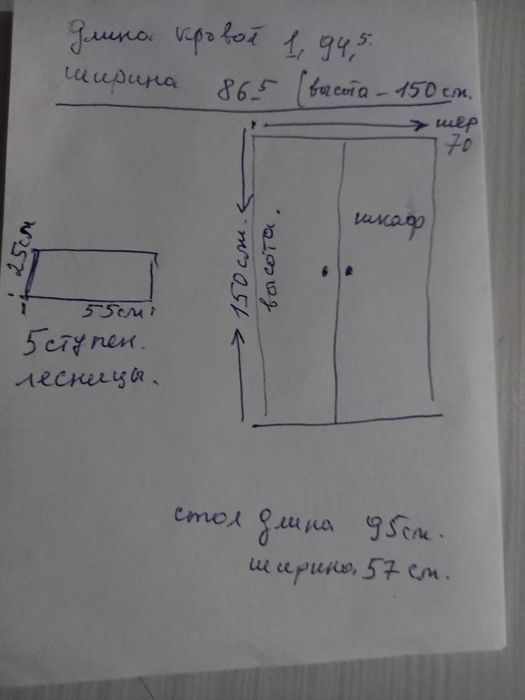 Длина кровот 1, 94,5.
ширина 86.5 (высота - 150 см.
шер
70
шкаф
150 см.
высота.
25см
55см
5 ступен.
лесницы.
стол длина 95 см.
ширина. 57 см.